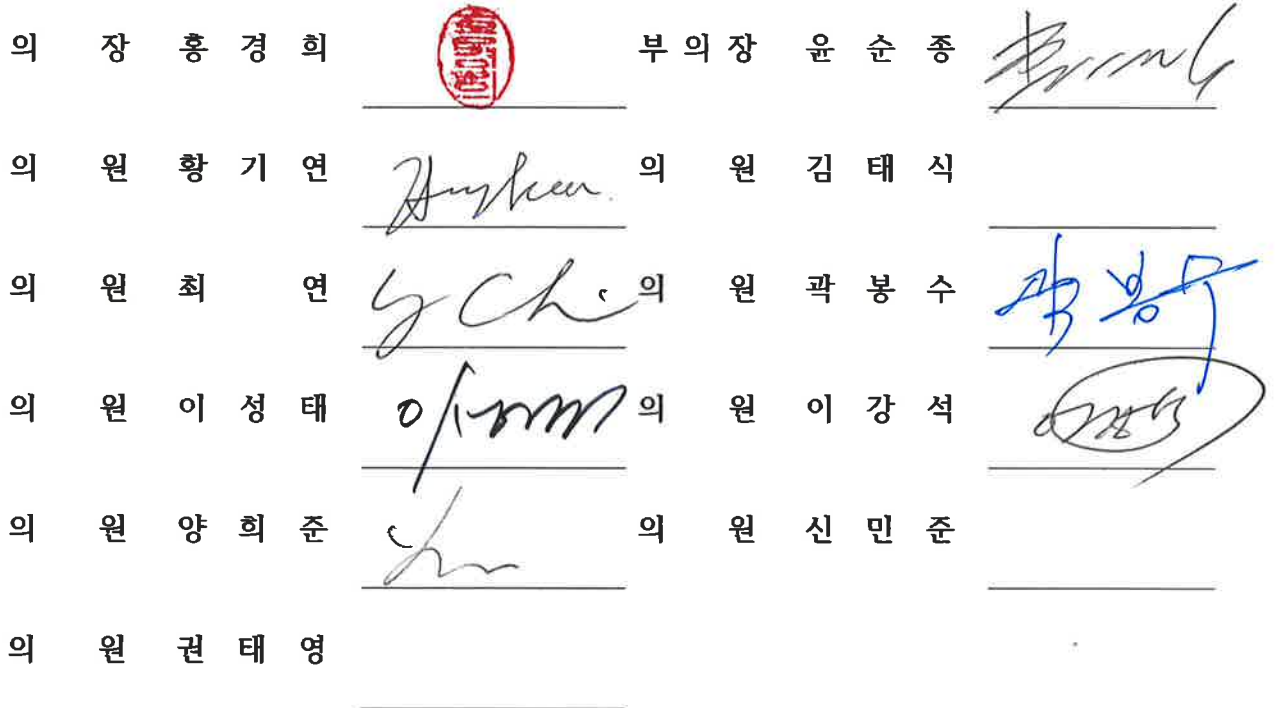 의 장 홍 경 희 부 의 장 윤 순 종
의 원 황 기 연 의 원 김 태 식
의 원 최 연 의 원 곽 봉 수 곽봉수
의 원 이 성 태 의 원 이 강 석
의 원 양 희 준 의 원 신 민 준
의 원 권 태 영